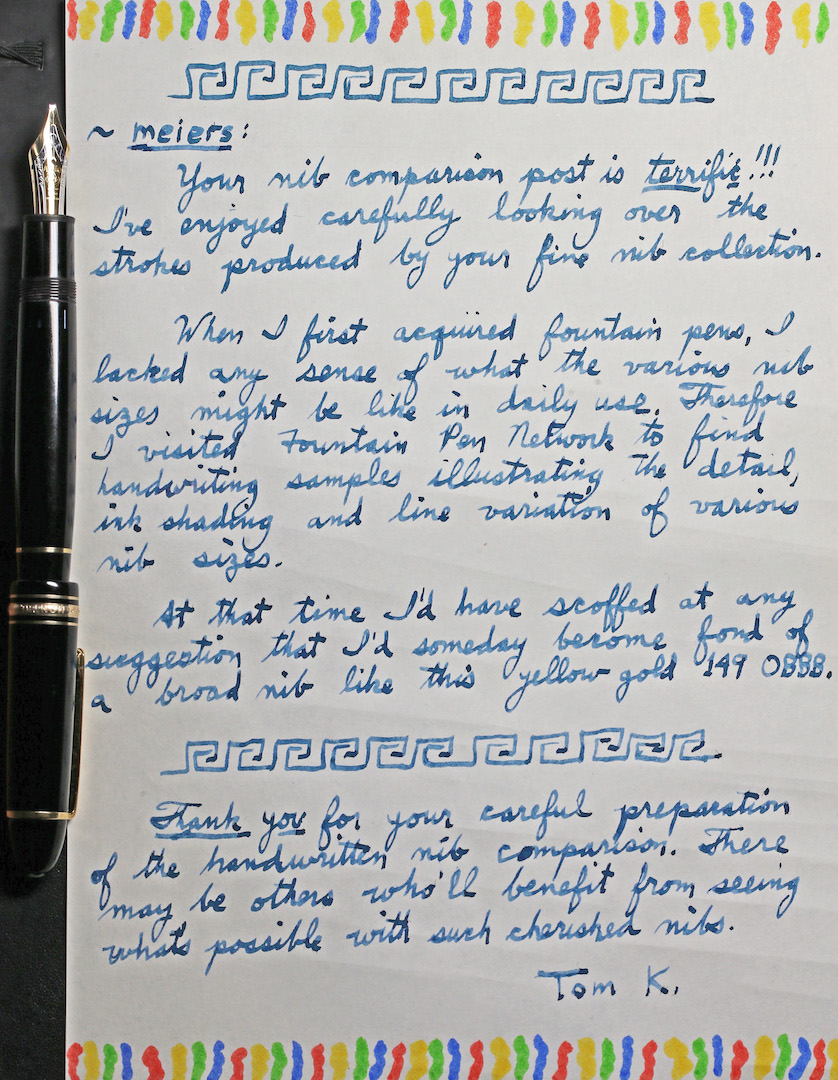 ~ meiers:
Your nib comparison post is terrific!!!
I've enjoyed carefully looking over the
strokes produced by your fine nib collection.
When I first acquired fountain pens, I
lacked any sense of what the various nib
sizes might be like in daily use. Therefore
I visited Fountain Pen Network to find
handwriting samples illustrating the detail,
ink shading and line variation of various
nib sizes.
At that time I'd have scoffed at any
suggestion that I'd someday become fond of
a broad nib like this yellow gold 149 OBBB.
Thank you for your careful preparation
of the handwritten nib comparison. There
may be others who'll benefit from seeing
what's possible with such cherished nibs.
Tom K.